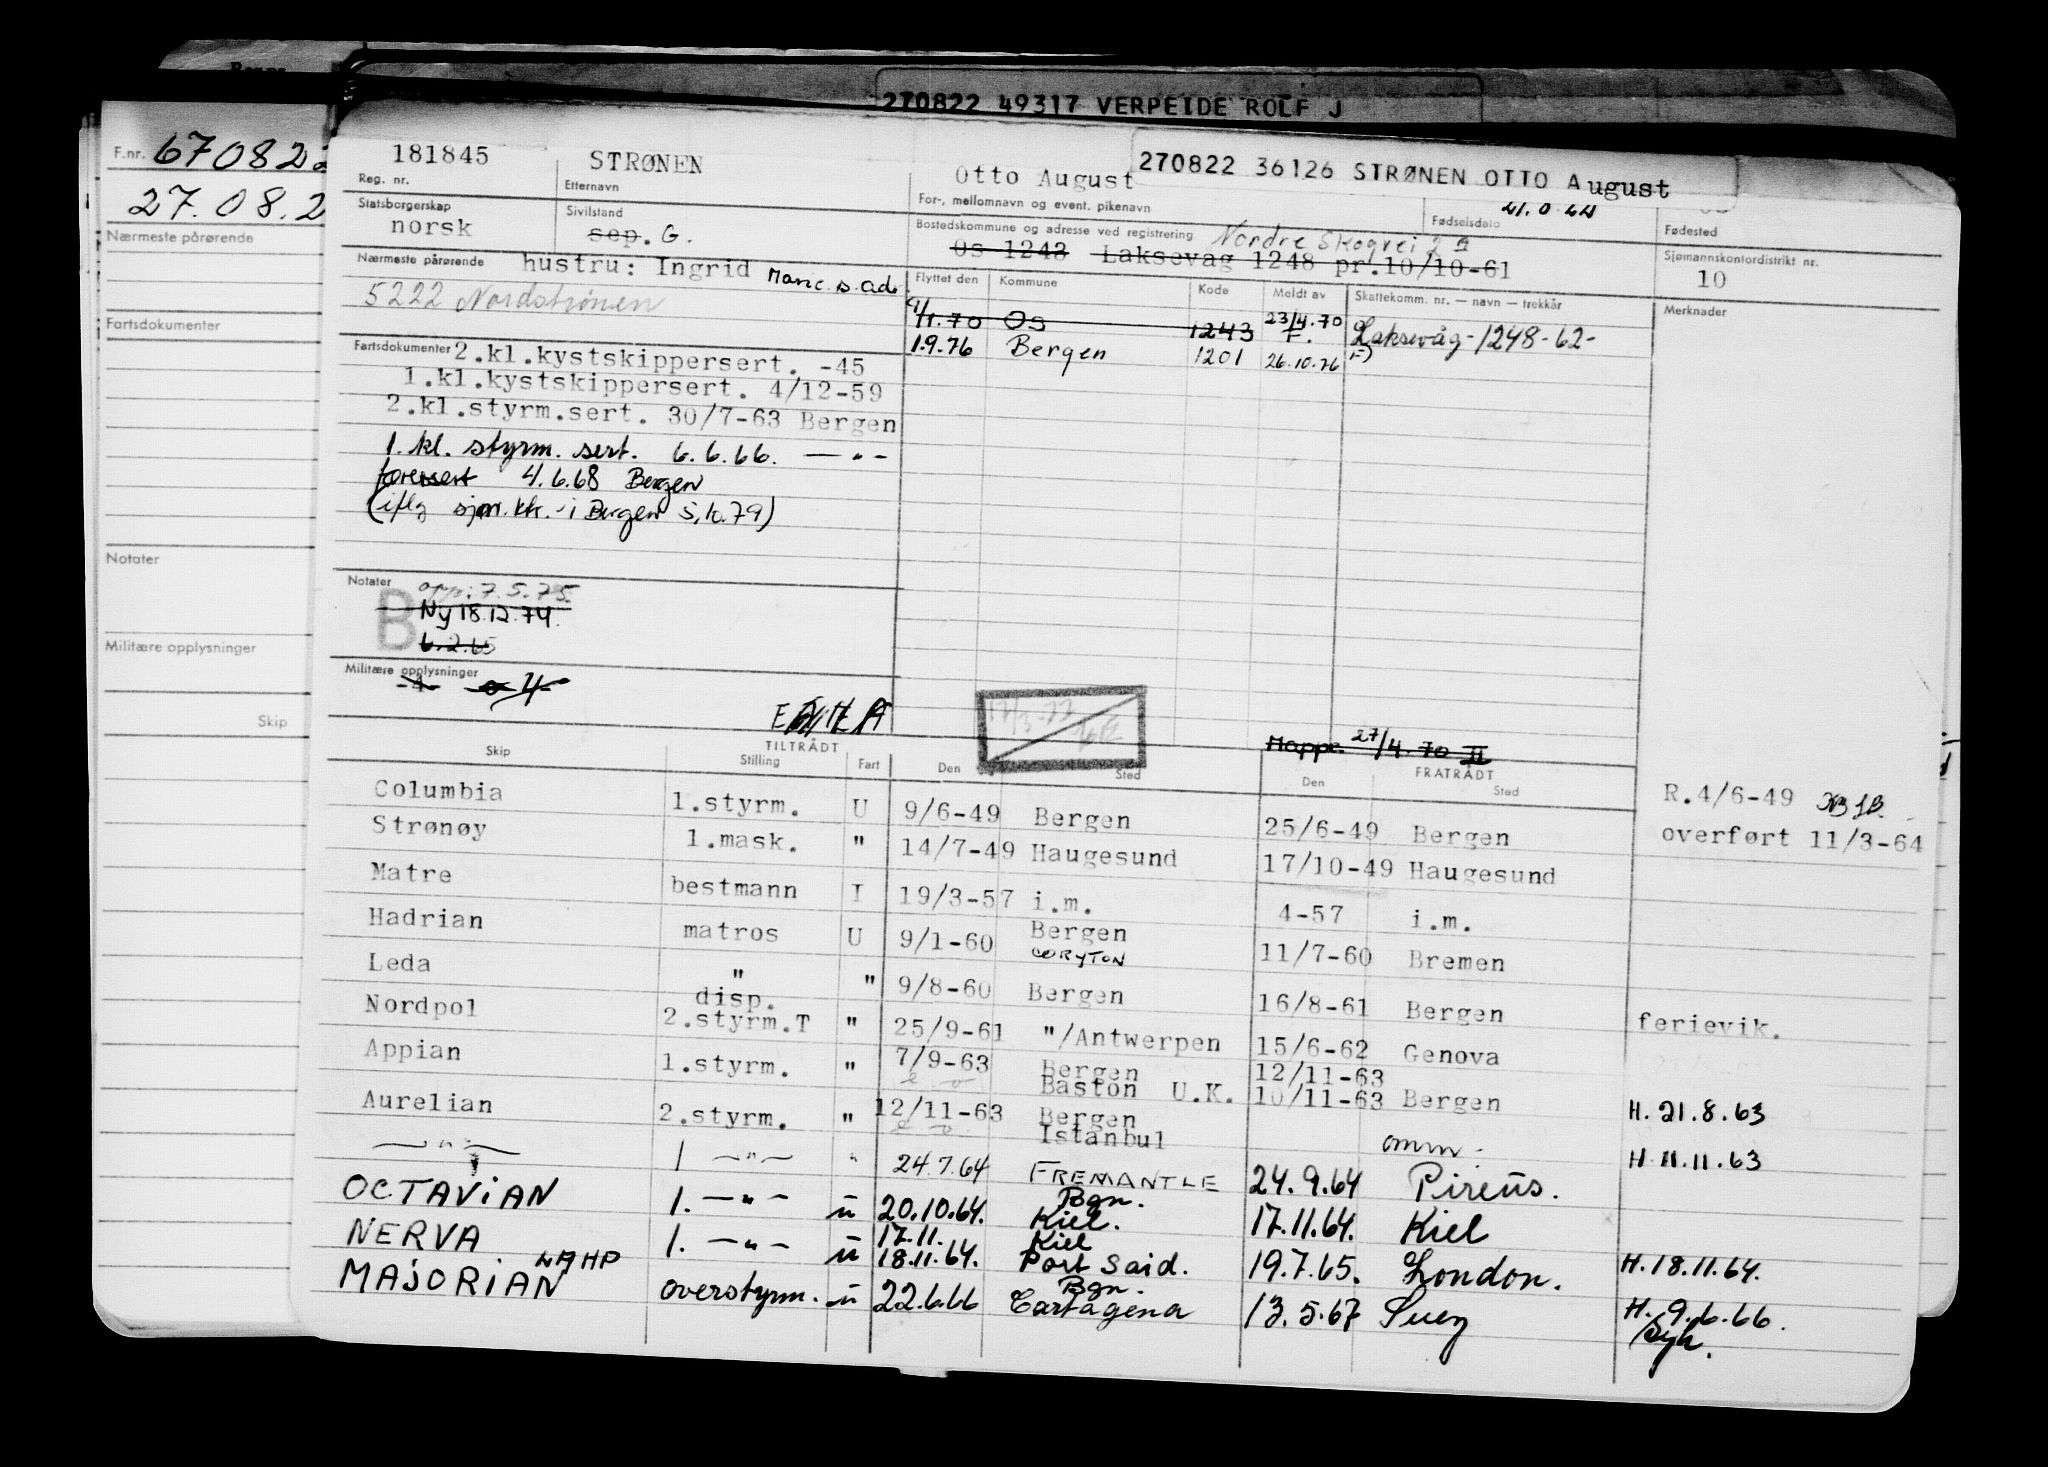 270822 49317 VERPEIDE ROLF J
F.nr. 670822
27.08.2
Nærmeste pårørende
Fartsdokumenter
Notater
Militære opplysninger
Skip
181845 STRØNEN Otto August 270822 36126 STRØNEN OTTO August
Reg. nr. Etternavn For-, mellomnavn og event. pikenavn Fødselsdato Fødested
Statsborgerskap Sivilstand Bostedskommune og adresse ved registrering Nordre Skogvei 2 A Sjømannskontordistrikt nr.
norsk sep. G. Os 1243 Laksevåg 1248 pr.10/10-61 10
Nærmeste pårørende hustru: Ingrid Marie s. adr.
5222 Nordstrønen
Flyttet den Kommune Kode Meldt av Skattekomm. nr. — navn — trekkår Merknader
1/1.70 Os 1243 23/4.70 F. Laksevåg-1248-62-
1.9.76 Bergen 1201 26.10.76
Fartsdokumenter 2.kl.kystskippersert. -45
1.kl.kystskippersert. 4/12-59
2.kl.styrm.sert. 30/7-63 Bergen
1. kl. styrm. sert. 6.6.66. — " —
førersert 4.6.68 Bergen
(iflg sjm. ktr. i Bergen 5.10.79)
Notater opp: 7.5.75
B Ny 18.12.74
6.2.65
Militære opplysninger
Mappe 27/4.70 II
TILTRÅDT FRATRÅDT
Skip Stilling Fart Den Sted Den Sted
R.4/6-49
overført 11/3-64
Columbia 1.styrm. U 9/6-49 Bergen 25/6-49 Bergen
Strønøy 1.mask. " 14/7-49 Haugesund 17/10-49 Haugesund
Matre bestmann I 19/3-57 i.m. 4-57 i.m.
Hadrian matros U 9/1-60 Bergen CORYTON 11/7-60 Bremen
Leda " " 9/8-60 Bergen 16/8-61 Bergen ferievik.
Nordpol disp. 2.styrm.T " 25/9-61 "/Antwerpen 15/6-62 Genova
Appian 1.styrm. " 7/9-63 Bergen Baston U.K. 12/11-63 10/11-63 Bergen H. 21.8.63
Aurelian 2.styrm. " 12/11-63 Bergen Istanbul omm. H. 11.11.63
— " — 1 — " — " 24.7.64 FREMANTLE 24.9.64 Pireus.
OCTAVIAN 1. — " — u 20.10.64. Bgn. Kiel. 17.11.64. Kiel
NERVA 1. — " — u 17.11. 18.11.64. Kiel Port Said. 19.7.65. London. H. 18.11.64.
MAJORIAN LAHP overstyrm. u 22.6.66 Bgn. Cartagena 13.5.67 Suez H. 9.6.66. Syk.